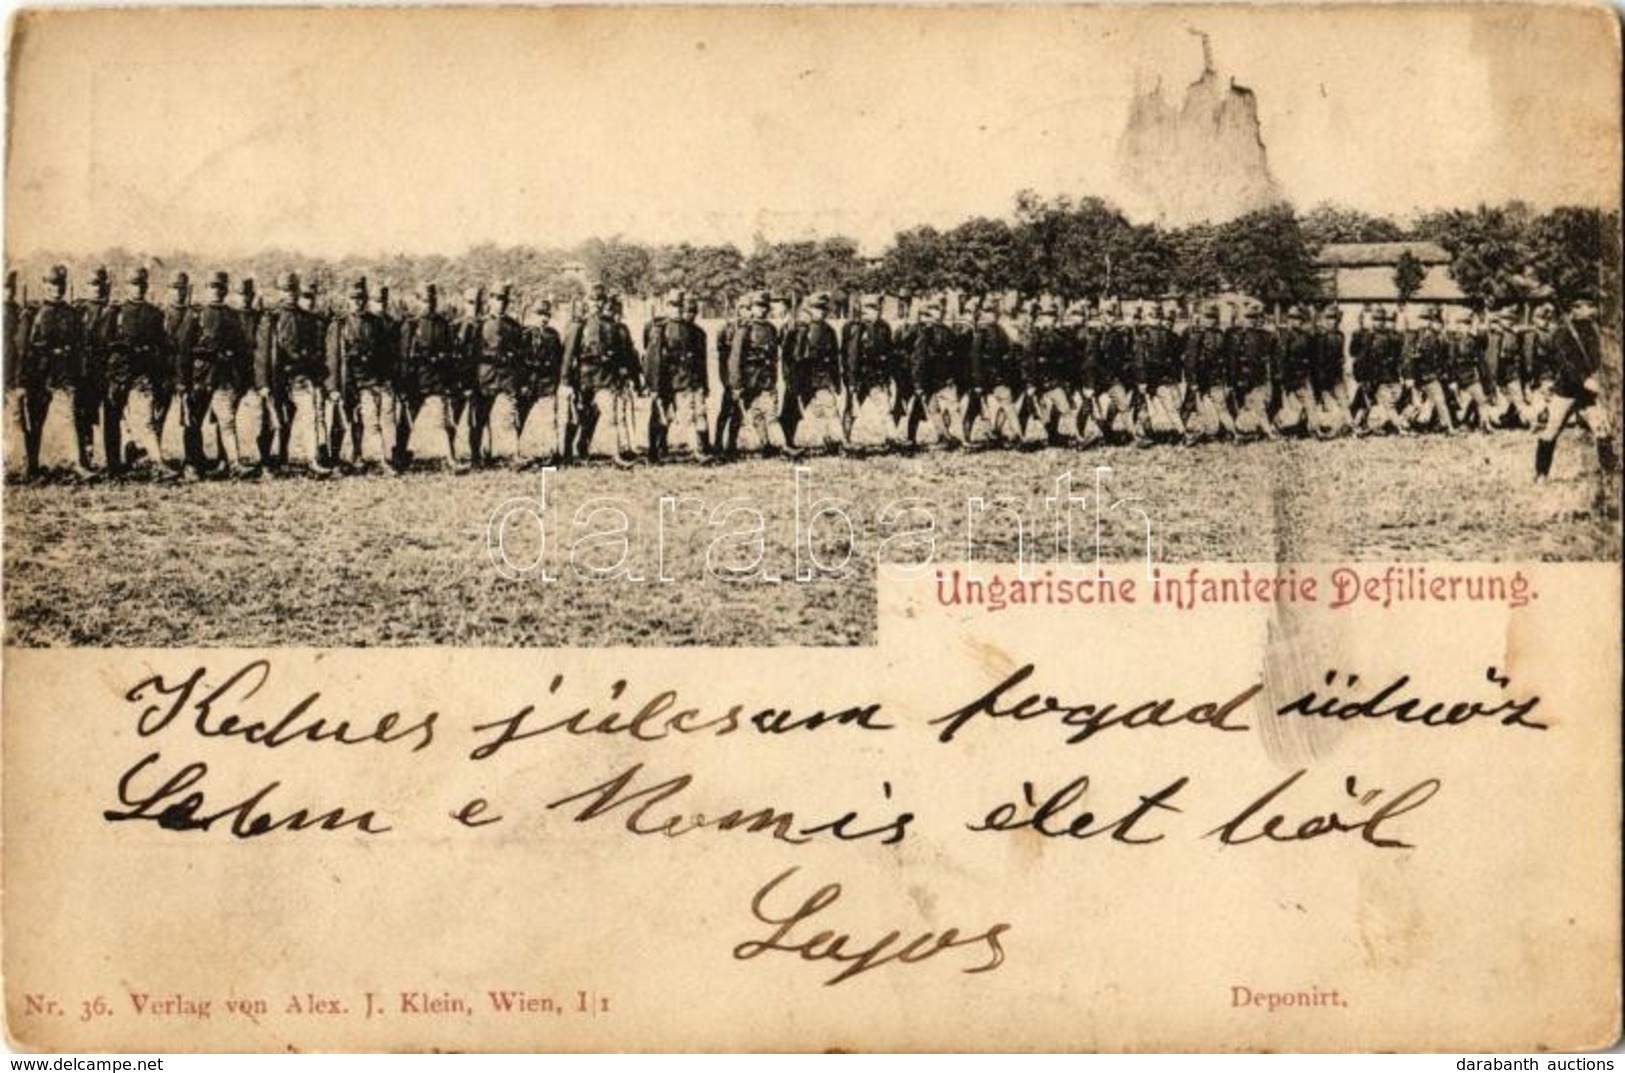 darabanth
Ungarische Infanterie Defilierung.
Kedves júlcsam fogad üdvöz
e élet ből
Lajos
Nr. 36. Verlag von Alex. J. Klein, Wien, I|1
Deponirt.
darabanth auctions